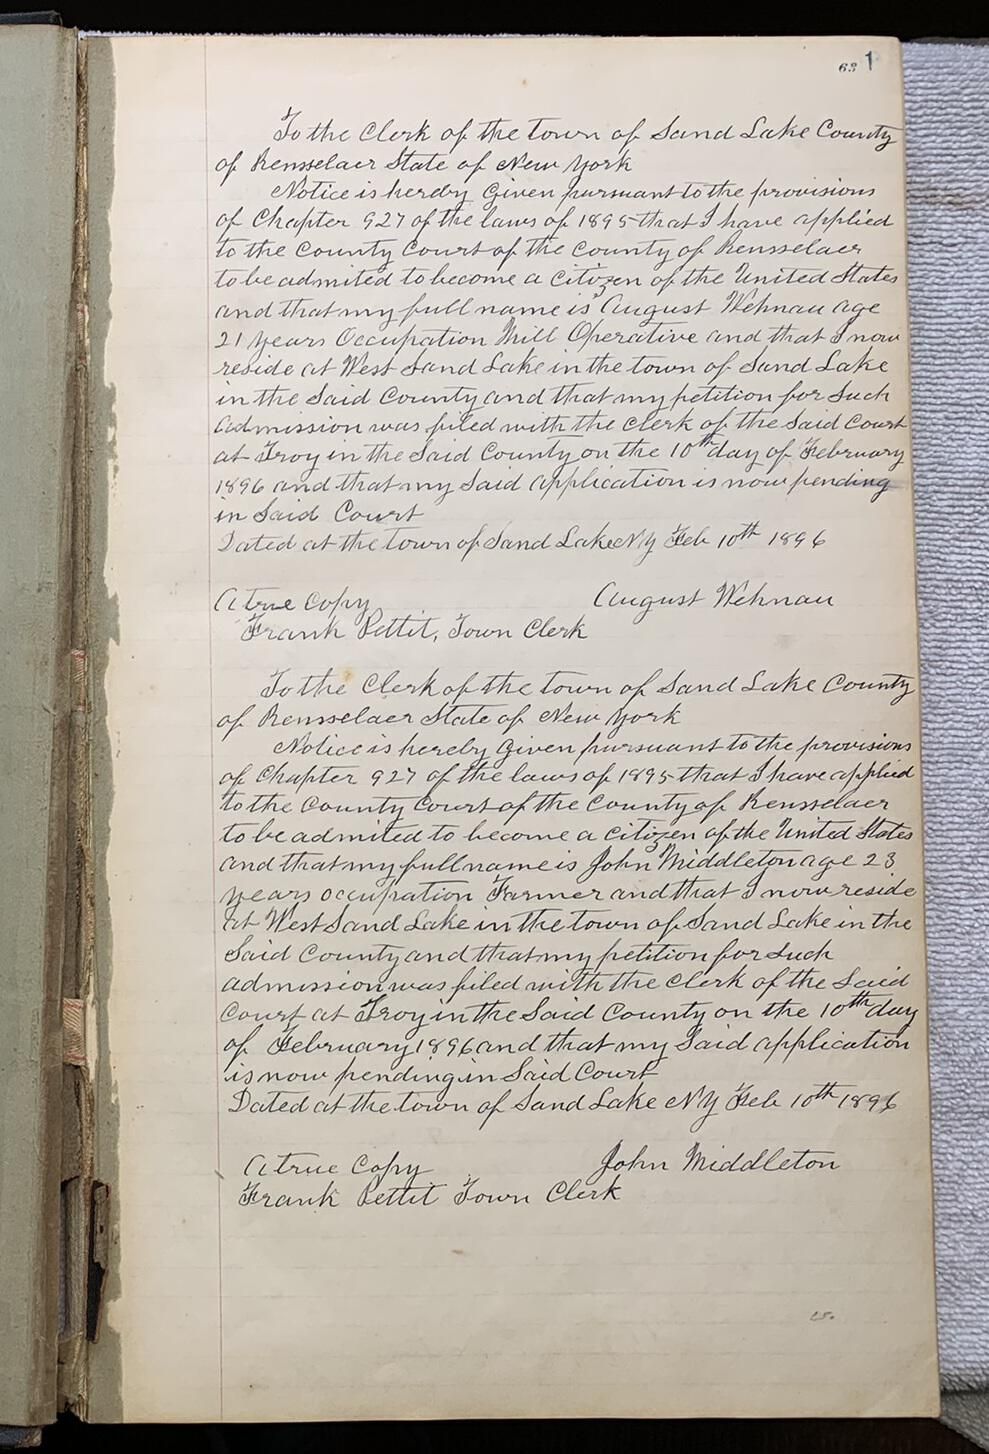 63 1
To the Clerk of the town of Sand Lake County
of Rensselaer State of New York
Notice is hereby Given pursuant to the provisions
of Chapter 927 of the laws of 1895 that I have applied
to the County Court of the County of Rensselaer
to be admited to become a Citizen of the United States
and that my full name is August Wehnau age
21 years Occupation Mill Operative and that I now
reside at West Sand Lake in the town of Sand Lake
in the Said County and that my petition for Such
Admission was filed with the Clerk of the Said Court
at Troy in the Said County on the 10th day of February
1896 and that my Said application is now pending
in Said Court
Dated at the town of Sand Lake NY Feb 10th 1896
A true Copy August Wehnau
Frank Pettit, Town Clerk
To the Clerk of the town of Sand Lake County
of Rensselaer State of New York
Notice is hereby Given pursuant to the provisions
of Chapter 927 of the laws of 1895 that I have applied
to the County Court of the County of Rensselaer
to be admited to become a Citizen of the United States
and that my full name is John Middleton age 23
years occupation Farmer and that I now reside
at West Sand Lake in the town of Sand Lake in the
Said County and that my petition for Such
admission was filed with the Clerk of the Said
Court at Troy in the Said County on the 10th day
of February 1896 and that my Said application
is now pending in Said Court
Dated at the town of Sand Lake NY Feb 10th 1896
A true Copy John Middleton
Frank Pettit Town Clerk